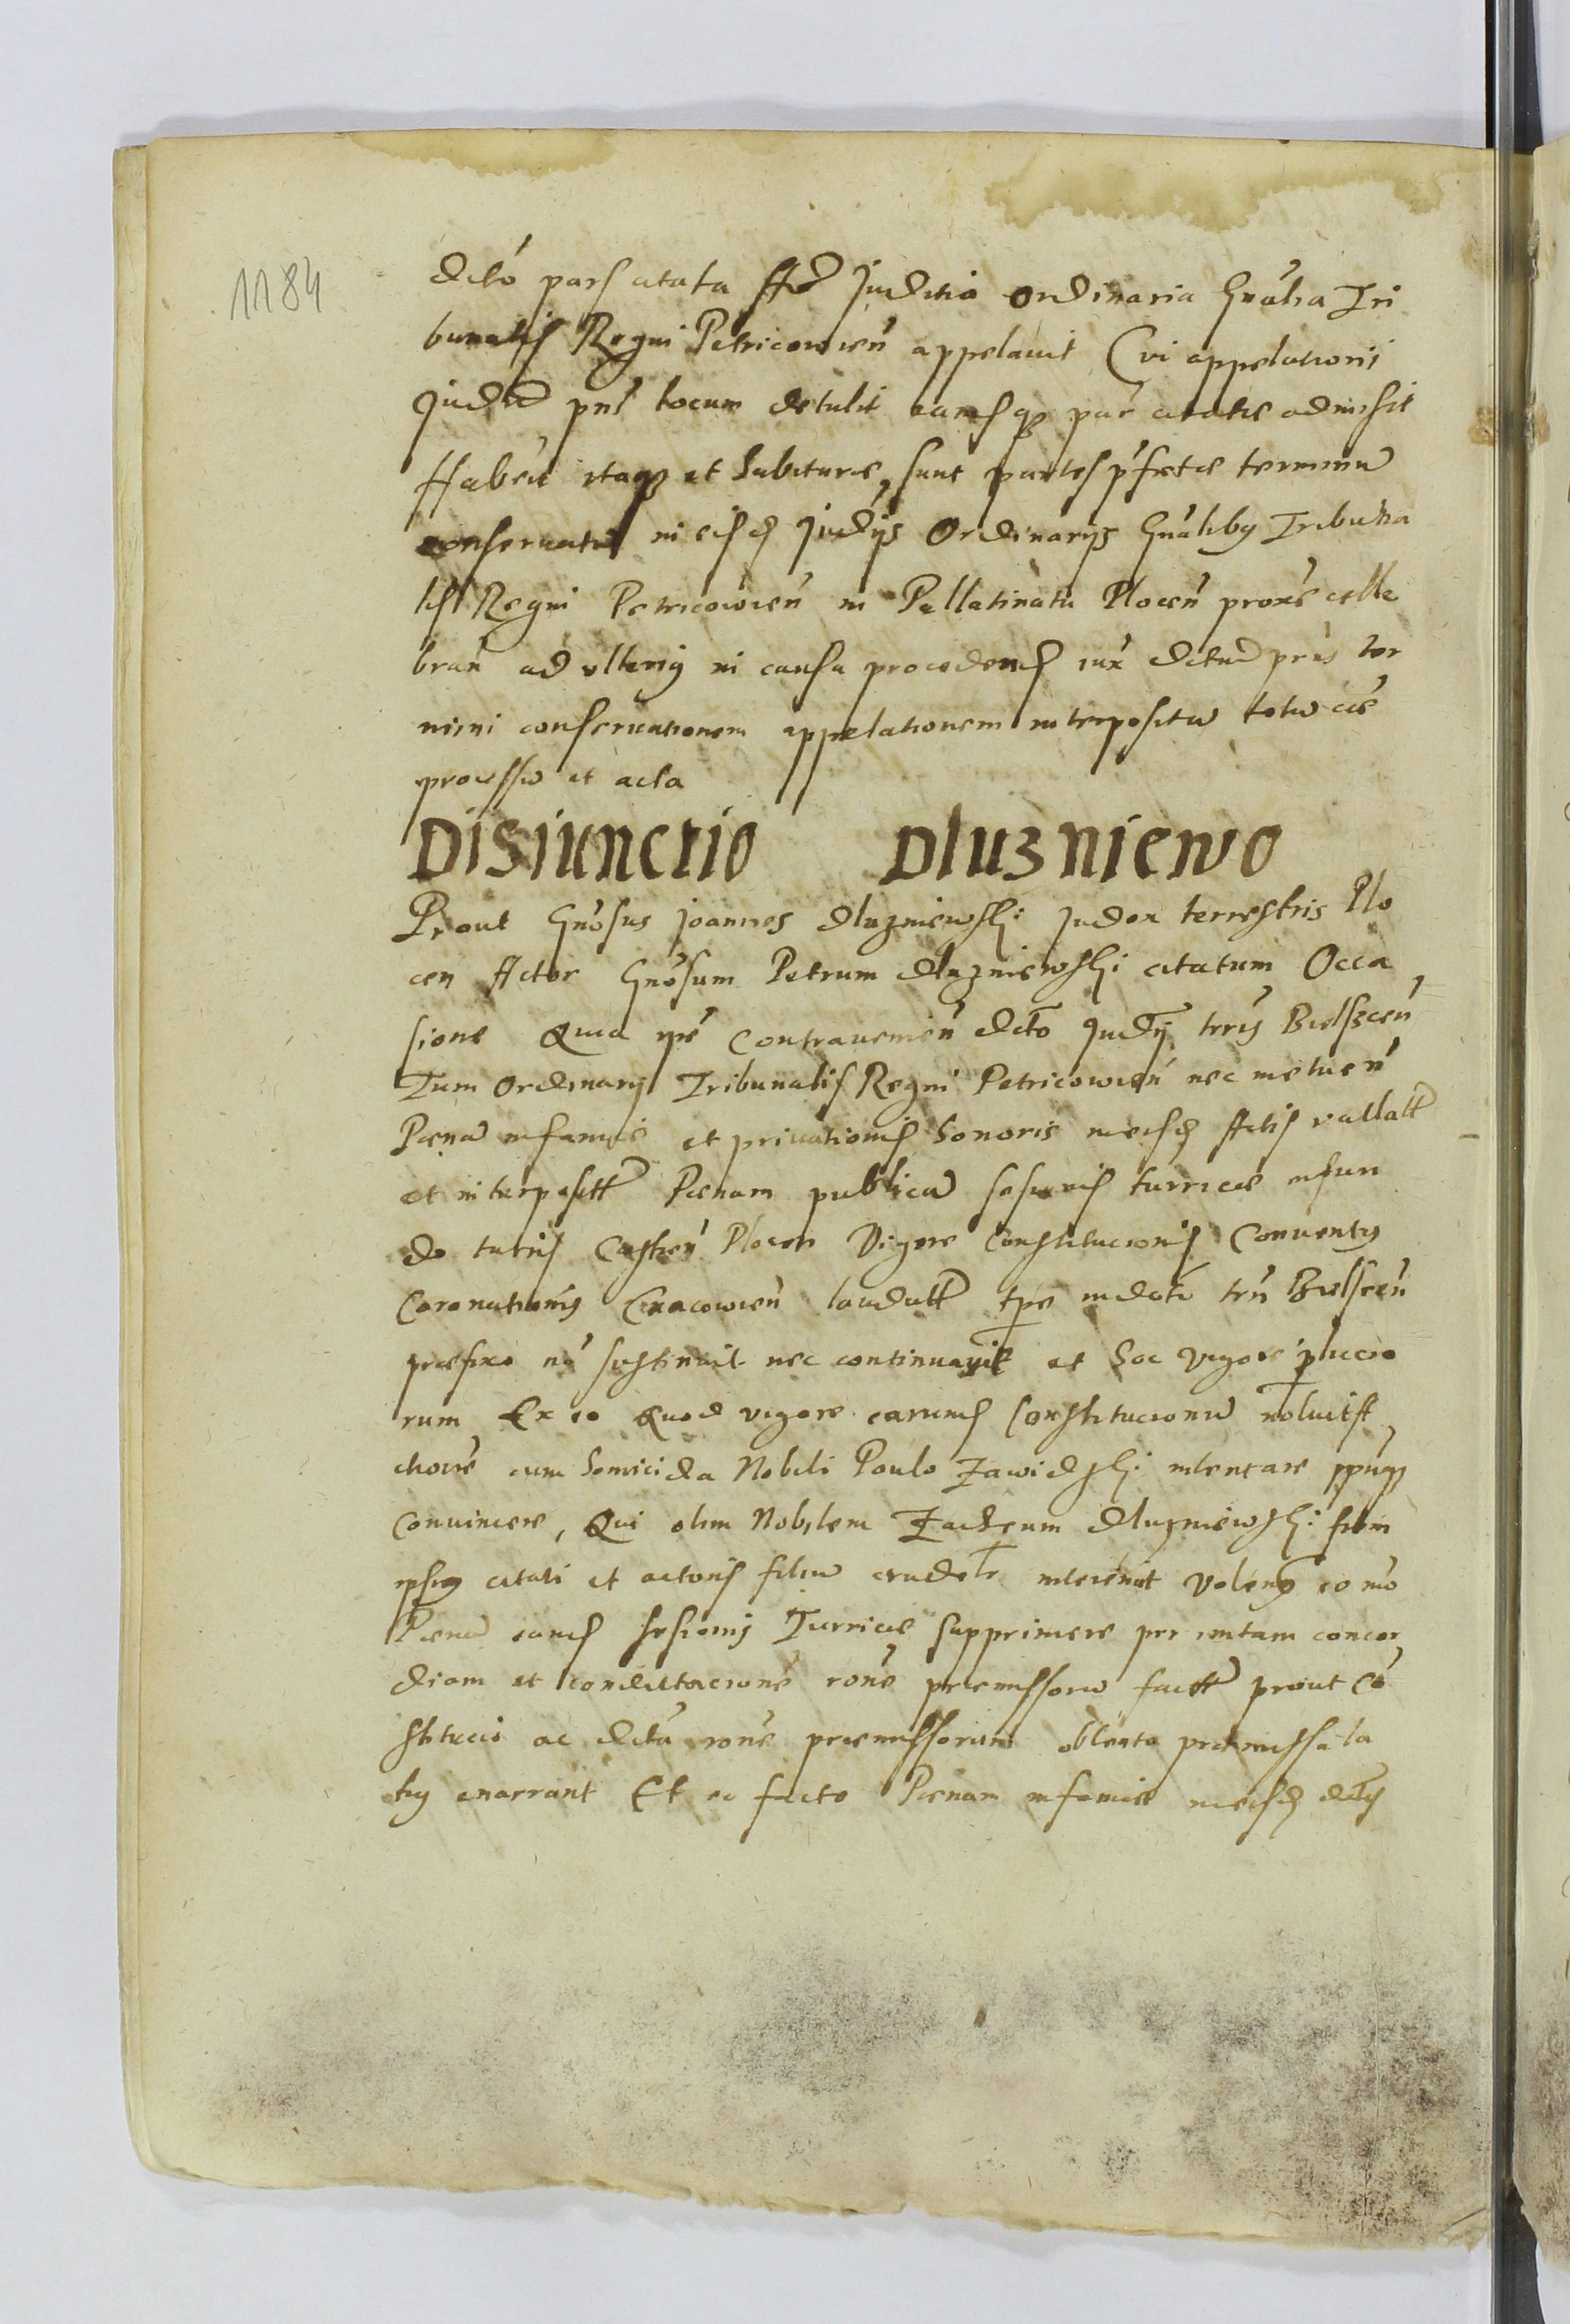 1184
dcto pars citata Ad Juditia Ordinaria Gnalia Tri
bunalis Regni Petricovien appelavit Cui appelationi
Juditiū pns locum detulit eamq par citatae admisit
Habent itaq et habiturae sunt partes pfatae terminū
conservatū in eisd Judijs Ordinarijs Gnalibg Tribuna
lis Regni Petricovien in Pallatinatu Plocen proxe celle
bran ad ulterig in causa procedend iux dctum prius ter
mini conservationem appelationem interpositū totū cae
processū et acta
Disiunctio Dluzniewo
Prout Gnosus Joannes Dluzniewski Judex terrestris Plo
cen Actor Gnosum Petrum Dluzniewski citatum Occa
sione Quia ipse Contravenien dcto Judij trris Bielscen
Tum Ordinarij Tribunalis Regni Petricovien nec metuen
Paenā infamiae et privationis honoris in eisd Actis vallat
et interposit Paenam publicā sesionis turricae in fun
do turris Castren Plocen Vigore Constitucionis Conventg
Coronationis Cracovien laudatt tpe in dcto trn Bielscen
praefixo nō sustinuit nec continuavit et hoc vigore
rum Ex eo Quod vigore earund Constitucionū noluisti
cum homicida Nobili Paulo Zawidzki intentare
Convincere, Qui olim Nobilem Dluzniewski frem
ipsig citati et actoris filiū crudelr interemit Volens eo mō
Paenā eand sesionis Turricae supprimere per initam concor
diam et condictacione rone praemissorū fact prout Co
stitucio ac dctū rone praemissorum obtenta praemissa la
tig enarrant Et eo facto Paenam infamiae in eisd dctis